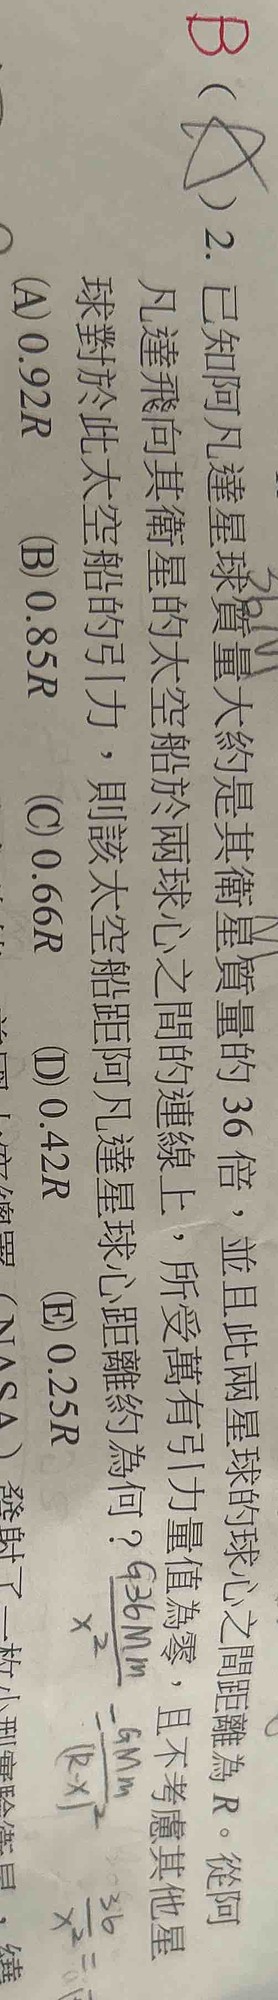 B
( A ) 2. 已知阿凡達星球質量大約是其衛星質量的 36 倍，並且此兩星球的球心之間距離為 R。從阿
凡達飛向其衛星的太空船於兩球心之間的連線上，所受萬有引力量值為零，且不考慮其他星
球對於此太空船的引力，則該太空船距阿凡達星球心距離約為何？
(A) 0.92R (B) 0.85R (C) 0.66R (D) 0.42R (E) 0.25R
36M
M
G36Mm / x² = GMm / (R-x)²
36 / x² =
(NASA) 發射了一枚小型實驗衛星，繞